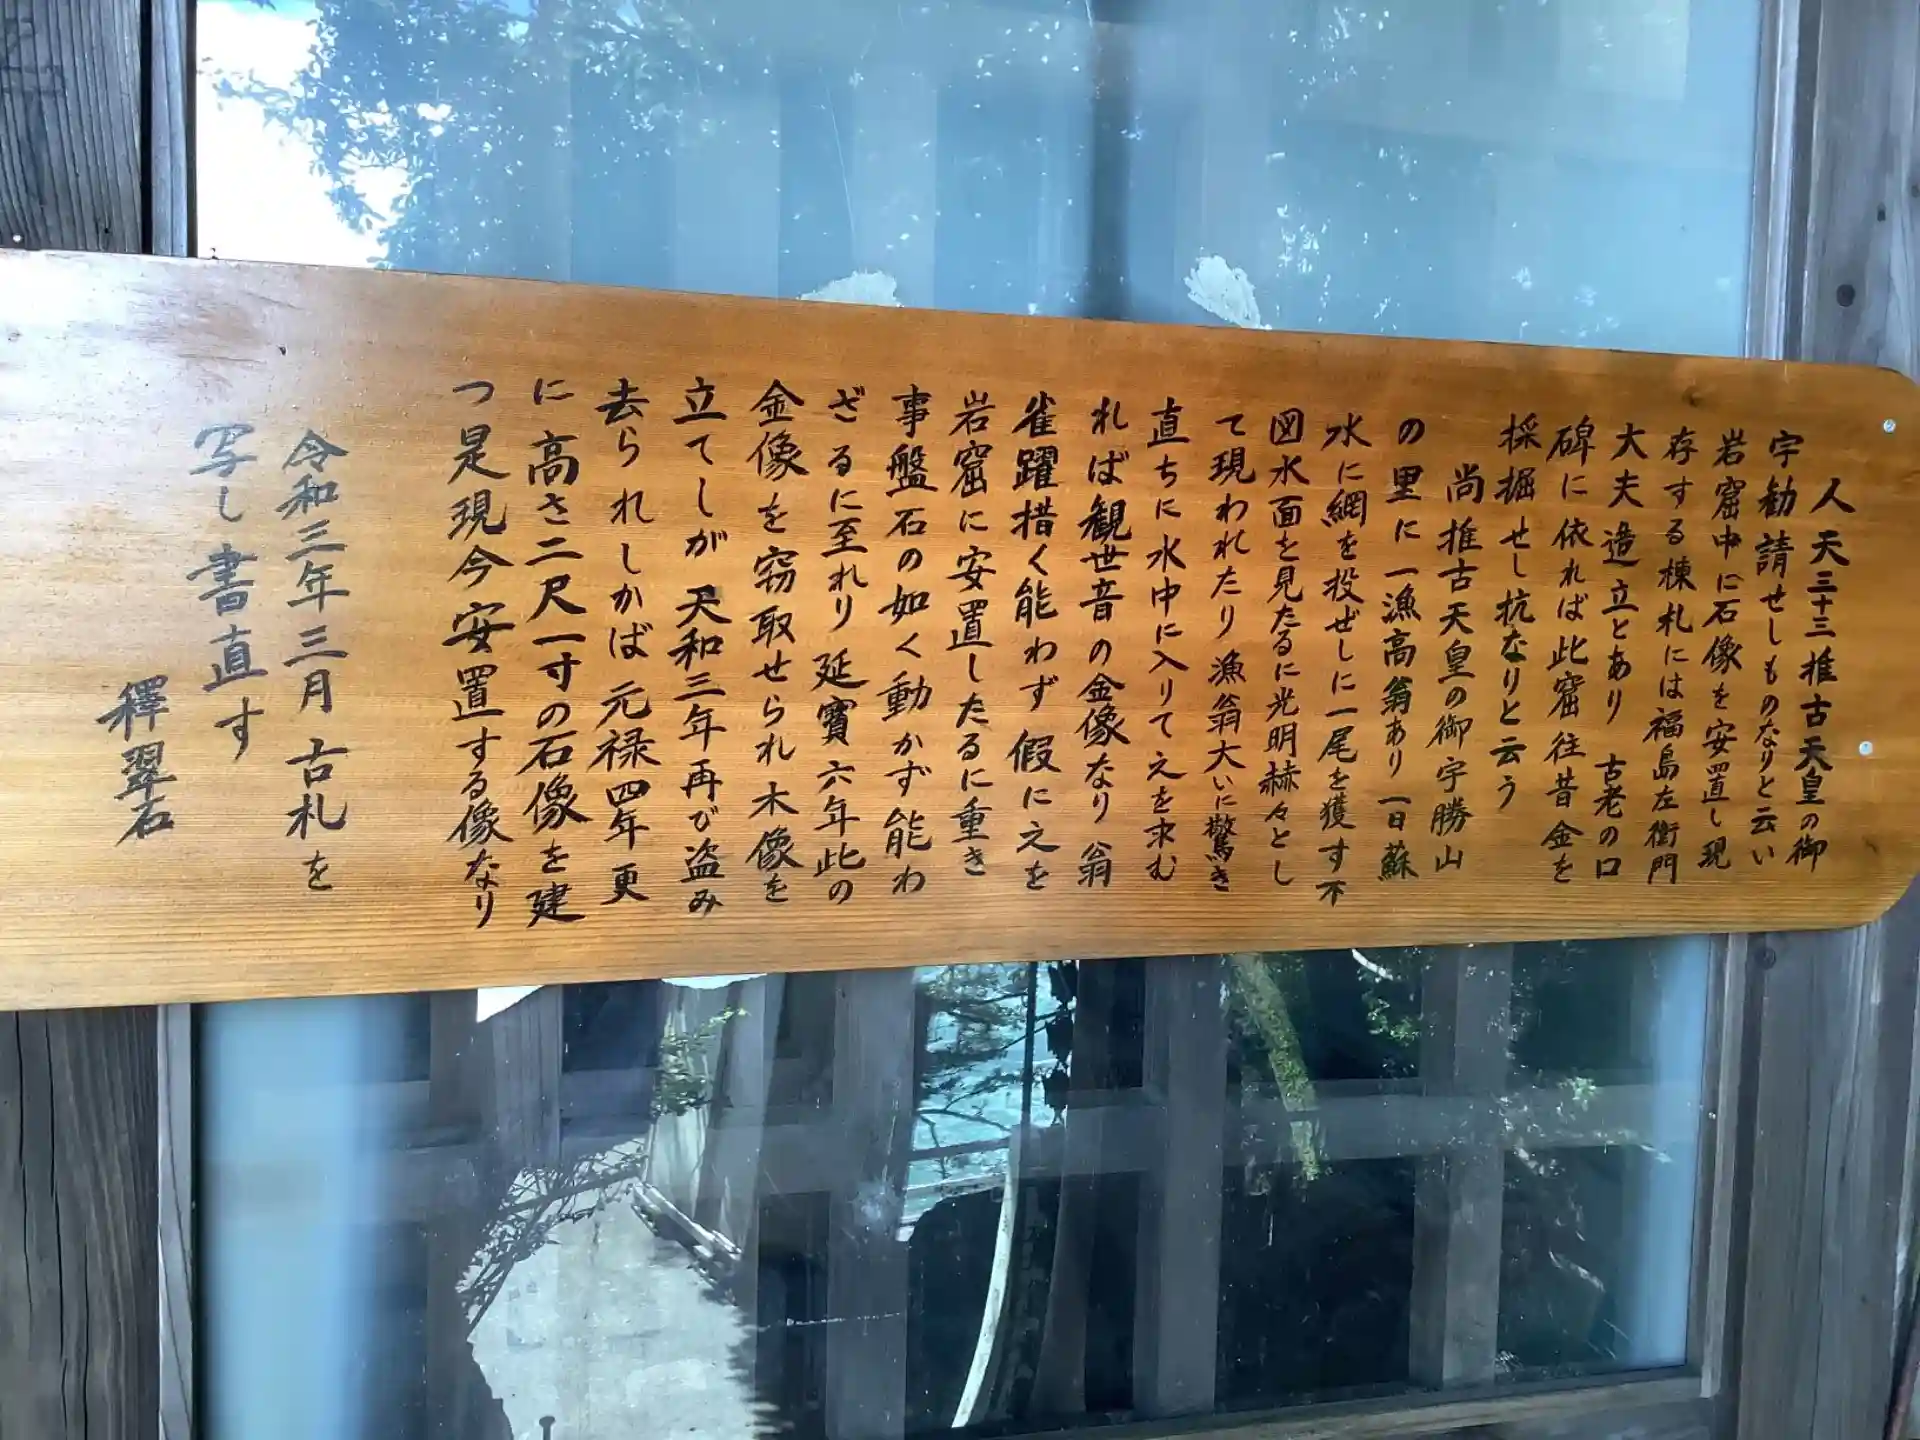 人天三十三推古天皇の御
宇勧請せしものなりと云い
岩窟中に石像を安置し現
存する棟札には福島左衛門
大夫造立とあり　古老の口
碑に依れば此窟往昔金を
採掘せし抗なりと云う
尚推古天皇の御宇勝山
の里に一漁高翁あり一日蘇
水に網を投ぜしに一尾を獲す不
図水面を見たるに光明赫々とし
て現われたり漁翁大いに驚き
直ちに水中に入りて之を求む
れば観世音の金像なり翁
雀躍措く能わず假に之を
岩窟に安置したるに重き
事盤石の如く動かず能わ
ざるに至れり　延寶六年此の
金像を窃取せられ木像を
立てしが天和三年再び盗み
去られしかば元禄四年更
に高さ二尺一寸の石像を建
つ是現今安置する像なり
令和三年三月古札を
写し書直す
釋翠石